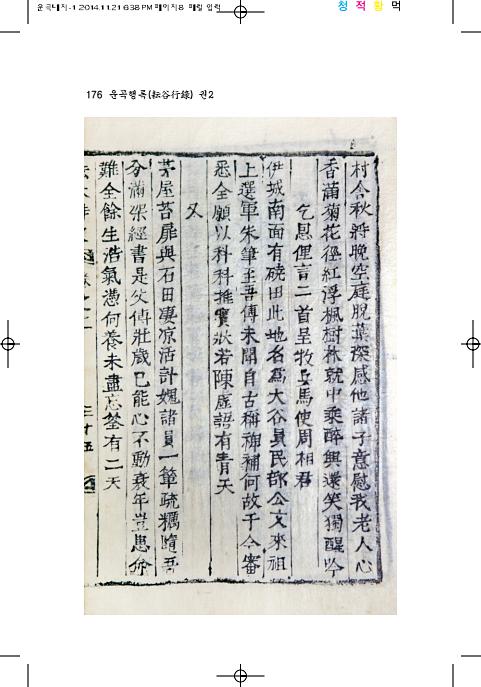 운곡내지-1 2014.11.21 6:38 PM 페이지8 매킬 업력
청 적 황 먹
176 운곡행록(耘谷行錄) 권2
村今秋將晩空庭脫葉深感他諸子意慰我老人心
香滿菊花徑紅浮楓樹林就中乘醉興還笑獨醒吟
乞恩俚言二首呈牧兵馬使周相君
伊城南面有磽田此地名爲大谷員民部公文來祖
上選軍朱筆至吾傳未聞自古稱裨補何故于今審
悉全願以科科推實狀若陳虛語有靑天
又
茅屋苔扉與石田凄凉活計愧諸員一簞疏糲隨吾
分滿架經書是父傳壯歲已能心不動衰年豈患命
難全餘生浩氣憑何養未盡忘筌有二天
三十五